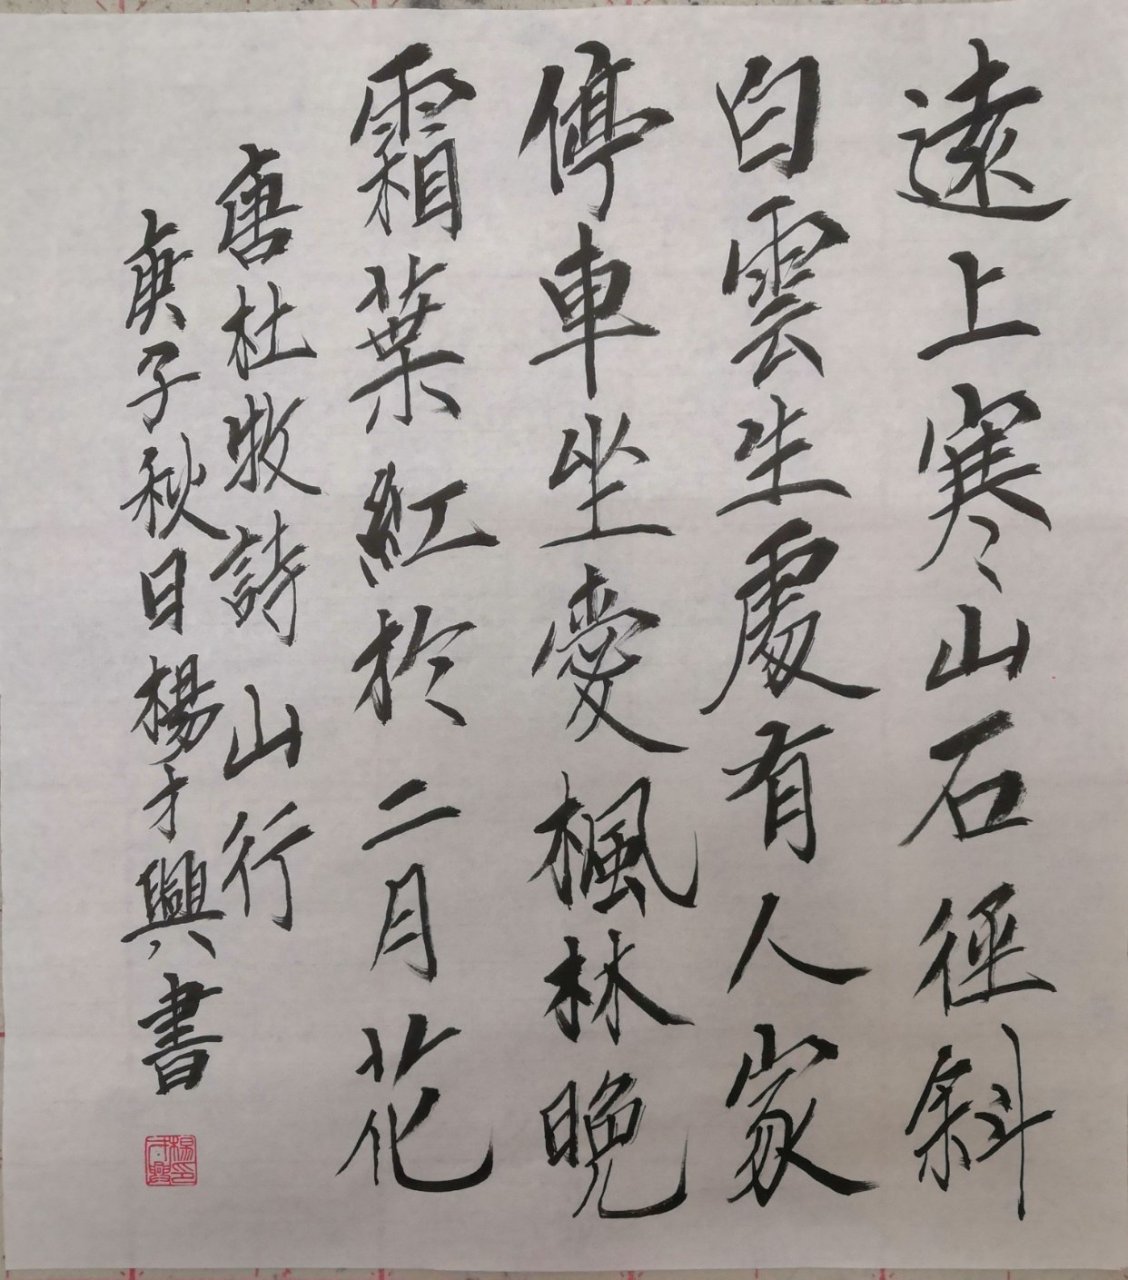 遠上寒山石徑斜
白雲生處有人家
停車坐愛楓林晚
霜葉紅於二月花
唐杜牧詩山行
庚子秋日楊才興書
楊才興印